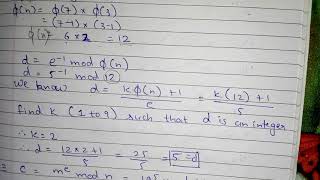 φ(n) = φ(7) × φ(3)
= (7-1) × (3-1)
φ(n) = 6 × 2 = 12
d = e⁻¹ mod φ(n)
d = 5⁻¹ mod 12
we know d = (k φ(n) + 1)/e = (k(12) + 1)/5
find k (1 to 9) such that d is an integer
∴ k = 2
∴ d = (12×2+1)/5 = 25/5 = 5 = d
c = mᵉ mod n =